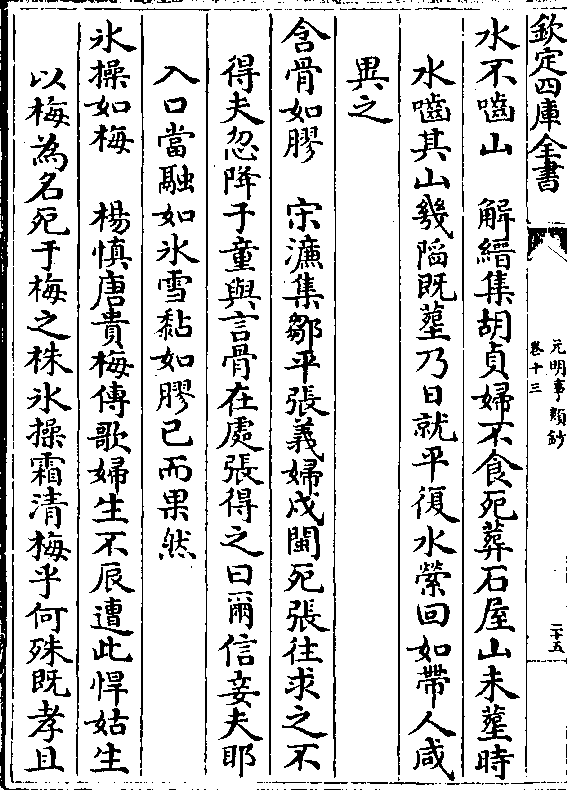 欽定四庫全書
元明事類鈔
卷十三
二十五
水不嚙山　解縉集胡貞婦不食死葬石屋山未塟時
水嚙其山幾陷既塟乃日就平復水縈回如帶人咸
異之
含骨如膠　宋濓集鄒平張義婦戍閩死張往求之不
得夫忽降于童與言骨在處張得之曰爾信妾夫耶
入口當融如氷雪黏如膠已而果然
氷操如梅　楊慎唐貴梅傳歌婦生不辰遭此悍姑生
以梅為名死于梅之株氷操霜清梅乎何殊既孝且